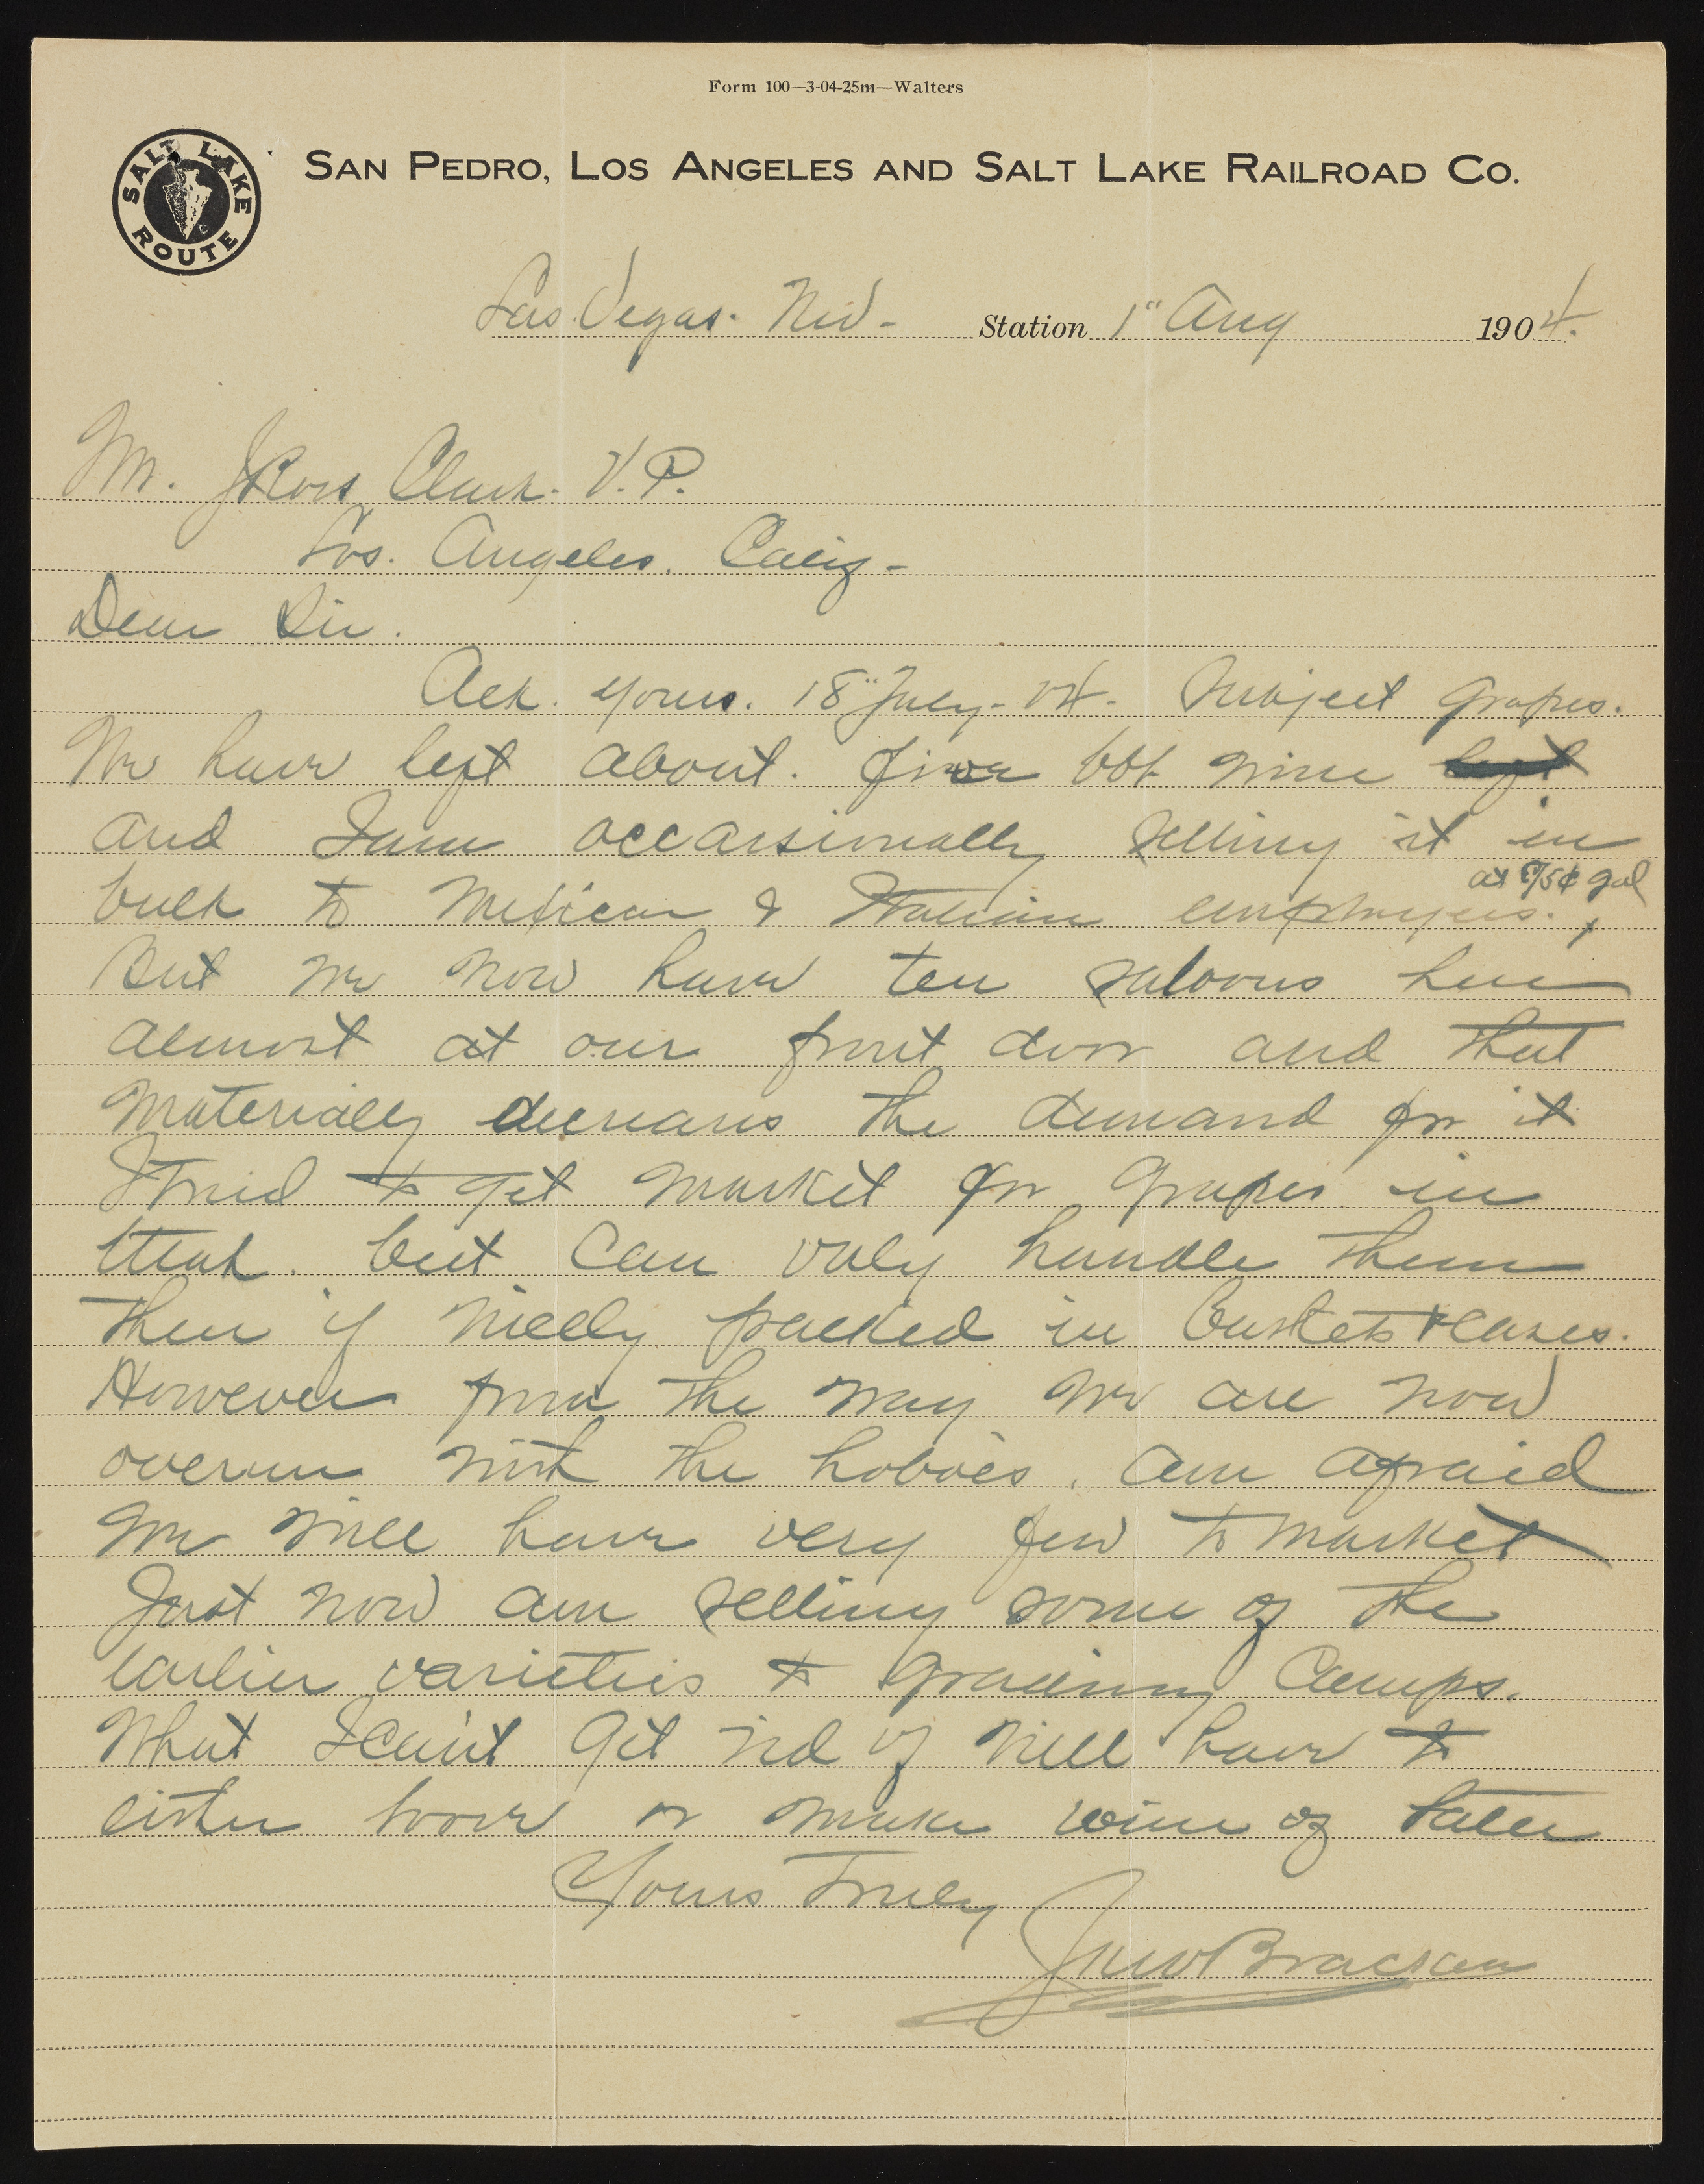 Form 100—3-04-25m—Walters
SALT LAKE ROUTE
SAN PEDRO, LOS ANGELES AND SALT LAKE RAILROAD CO.
Las Vegas. Nev - Station 1" Aug 1904.
Mr. J Ross Clark. V.P.
Los. Angeles. Calif -
Dear Sir.
Ack. yours. 18" July - 04. Subject Grapes.
We have left about. five bbl wine left
and I am occassionally selling it in
at 75¢ gal
bulk to Mexican & Italian employees.,
But we now have ten saloons here
almost at our front door and that
materially decreases the demand for it
I tried to get market for grapes in
Utah. but can only handle them
then if nicely packed in baskets & cases.
However from the way we are now
overrun with the hoboes. am afraid
we will have very few to market
Just now am selling some of the
earlier varieties to grading camps.
What I can't get rid of will have to
either or make wine of later
Yours Truly
Jno W Bracken